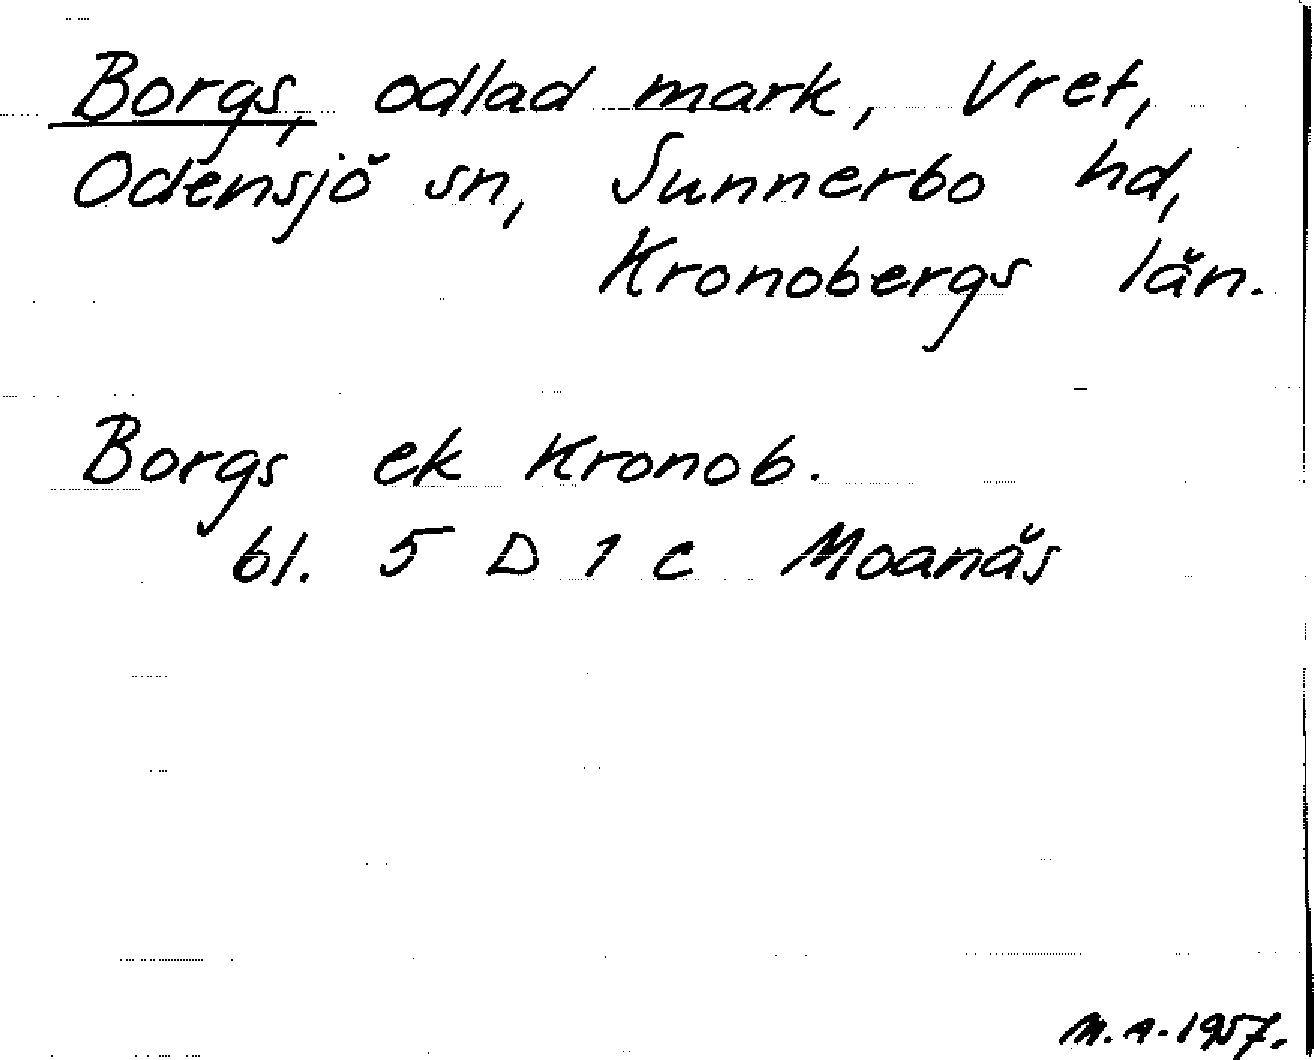 Borgs, odlad mark, Vret,
Odensjö sn, Sunnerbo hd,
Kronobergs län.
Borgs ek Kronob.
bl. 5 D 1 c Moanäs
M. A. 1957.